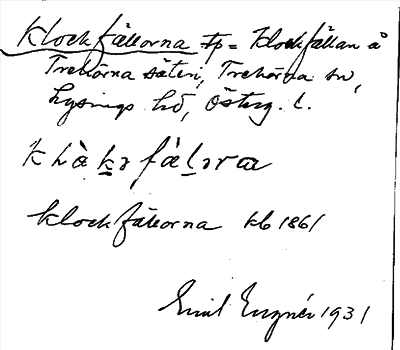 Klockfällorna tp = Klockfällan å
Trehörna säteri, Trehörna sn,
Lysings hd, Österg. l.
klàkəfäləra
klockfällorna kb 1861
Emil 1931